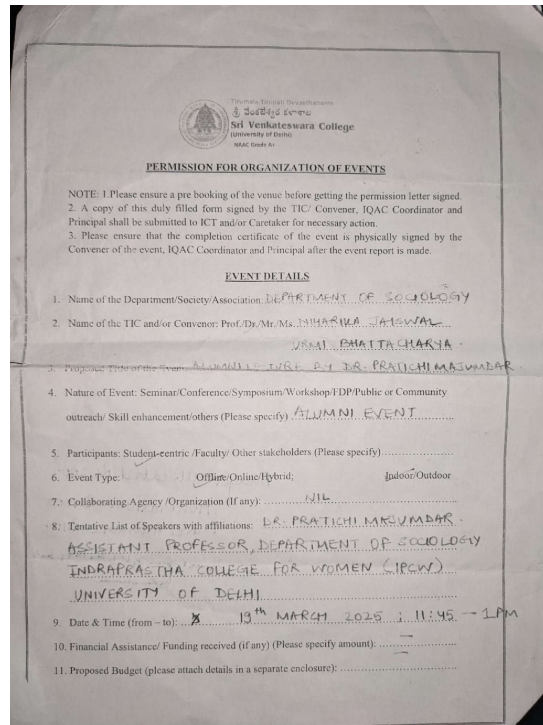 Tirumala Tirupati Devasthanams
శ్రీ వేంకటేశ్వర కళాశాల
Sri Venkateswara College
(University of Delhi)
NAAC Grade A+
PERMISSION FOR ORGANIZATION OF EVENTS
NOTE: 1.Please ensure a pre booking of the venue before getting the permission letter signed.
2. A copy of this duly filled form signed by the TIC/ Convener, IQAC Coordinator and
Principal shall be submitted to ICT and/or Caretaker for necessary action.
3. Please ensure that the completion certificate of the event is physically signed by the
Convener of the event, IQAC Coordinator and Principal after the event report is made.
EVENT DETAILS
1. Name of the Department/Society/Association: DEPARTMENT OF SOCIOLOGY
2. Name of the TIC and/or Convenor: Prof./Dr./Mr./Ms. NIHARIKA JAISWAL
URMI BHATTACHARYA
3. Proposed Title of the Event: ALUMNI BY DR. PRATICHI MAJUMDAR
4. Nature of Event: Seminar/Conference/Symposium/Workshop/FDP/Public or Community
outreach/ Skill enhancement/others (Please specify) ALUMNI EVENT
5. Participants: Student-centric /Faculty/ Other stakeholders (Please specify)
6. Event Type: Offline/Online/Hybrid; Indoor/Outdoor
7. Collaborating Agency /Organization (If any): NIL
8. Tentative List of Speakers with affiliations: DR. PRATICHI MAJUMDAR.
ASSISTANT PROFESSOR, DEPARTMENT OF SOCIOLOGY
INDRAPRASTHA COLLEGE FOR WOMEN (IPCW)
UNIVERSITY OF DELHI
9. Date & Time (from – to): 19th MARCH 2025 ; 11:45 – 1 PM
10. Financial Assistance/ Funding received (if any) (Please specify amount): —
11. Proposed Budget (please attach details in a separate enclosure):